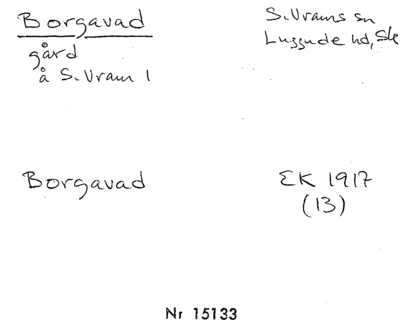 Borgavad
S. Vrams sn
Luggude hd, Sk
gård
å S. Vram 1
Borgavad
EK 1917
(13)
Nr 15133